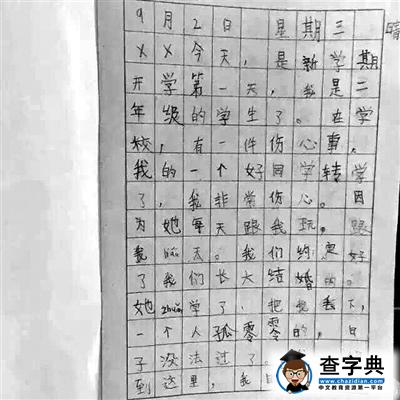 9月2日 星期三 晴
××今天，是新学期
开学第一天，我是二
年级的学生了。在学
校，有一件伤心事，
我的一个好同学转学
了，我非常伤心。因
为她每天跟我玩。跟
我聊天。我们约好
了我们长大结婚的。
她zhuǎn学了，把我丢下，
一个人孤零零的，日
子没法过了。
到这里，我
查字典
中文教育资源第一平台
www.chazidian.com